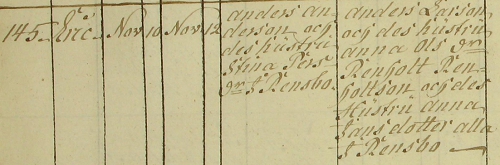 145. Eric Nov 10 Nov 12
anders an-
derson och
des hüstrü
Stina Pers
dr I Rensbo.
anders Larson
och des hüstrü
anna Ols dr
Renholt Ren-
holtson och des
Hüstrü anna
Jans dotter alla
I Rensbo